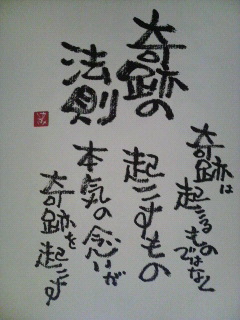 奇跡の
法則
奇跡は
起こるもの
ではなく
起こすもの
本気の念いが
奇跡を起こす